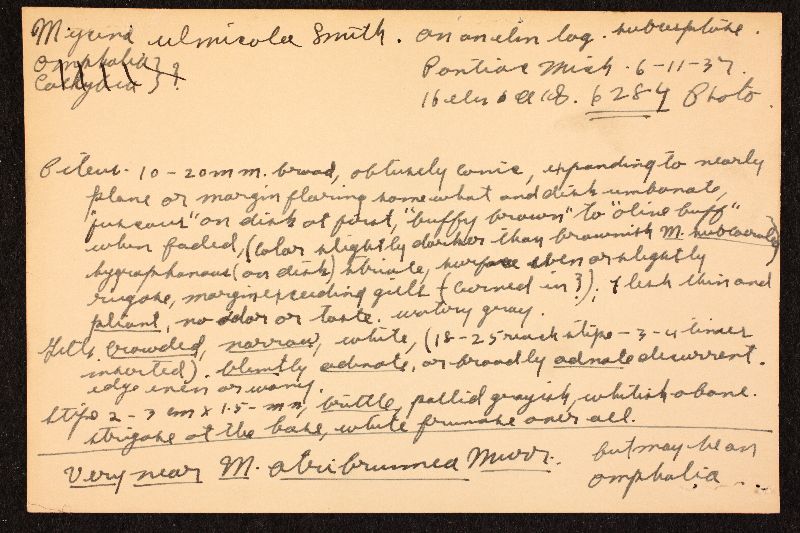 Mycena ulmicola Smith. on an elm log. subcespitose.
Omphalia }
Collybia } ?
Pontiac Mich. 6-11-37.
6284 Photo.
Pileus - 10-20 mm. broad, obtusely conic, expanding to nearly
plane or margin flaring somewhat and disk umbonate,
"fuscous" on disk at first, "buffy brown" to "olive buff"
when faded, (color slightly darker than brownish M. subcoracata)
hygrophanous (on disk) striate, surface even or slightly
rugose, margin exceeding gills & (curved in?); flesh thin and
pliant, no odor or taste. watery gray.
Gills crowded, narrow, white, (18-25 reach stipe - 3-4 tiers
inserted). bluntly adnate, or broadly adnate decurrent.
edge even or wavy.
Stipe 2-3 cm x 1.5- mm, brittle, pallid grayish, whitish above.
strigose at the base, white pruinose over all.
Very near M. atribrunnea Murr. but may be an
omphalia ...